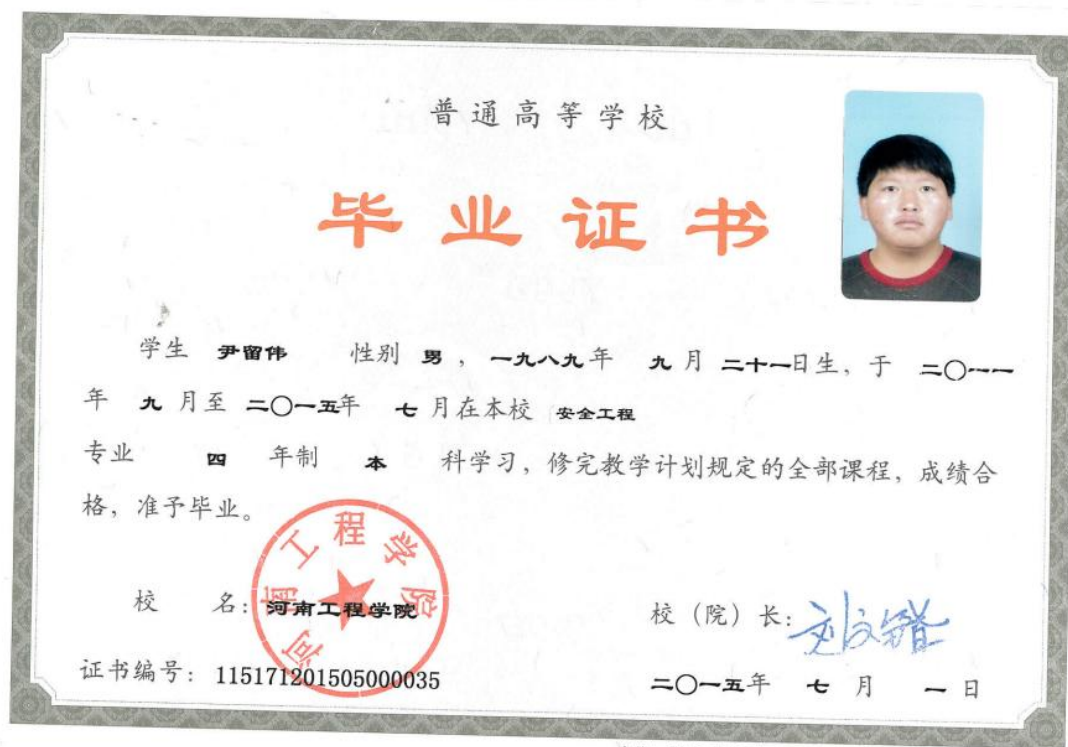 普通高等学校
毕业证书
学生 尹留伟 性别 男，一九八九年 九月二十一日生，于 二〇一一
年 九月至二〇一五年 七月在本校 安全工程
专业 四 年制 本 科学习，修完教学计划规定的全部课程，成绩合
格，准予毕业。
河南工程学院
校 名：河南工程学院
校（院）长：
证书编号：115171201505000035
二〇一五年 七月 一日